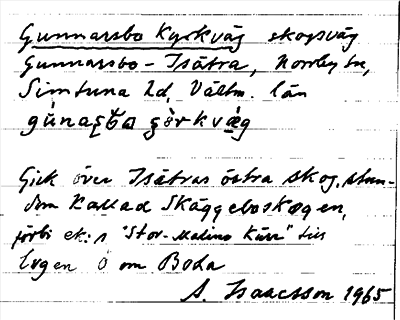 Gunnarsbo Kyrkväg skogsväg
Gunnarsbo - Isätra, Norrby sn,
Simtuna hd, Västm. län
Gick över Isätras östra skog, stun-
dom kallad Skäggeboskogen,
förbi ek: s "Stor-Malins Kärr" till
vägen ö om Boda
A. Isaacsson 1965